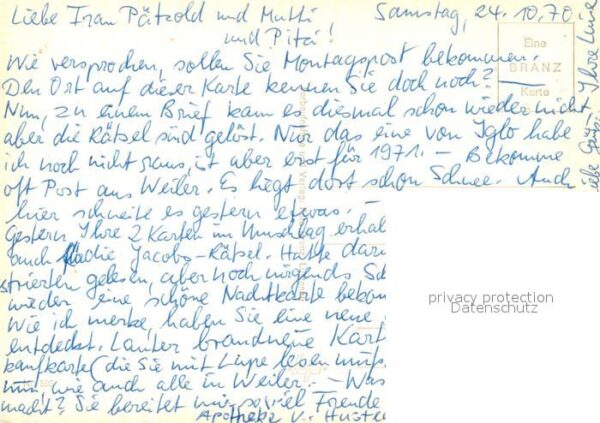 Liebe Frau Pätzold und Mutti
und Pitzi!
Samstag, 24.10.70
Wie versprochen, sollen Sie Montagspost bekommen.
Den Ort auf dieser Karte kennen Sie doch noch? –
Nun, zu einem Brief kam es diesmal schon wieder nicht
aber die Rätsel sind gelöst. Nur das eine von Iglo habe
ich noch nicht raus, ist aber erst für 1971. – Bekomme
oft Post aus Weiler. Es liegt dort schon Schnee. Auch
hier schneite es gestern etwas. –
Gestern Ihre 2 Karten im Umschlag erhal
auch die Jacobs-Rätsel. Hatte
strierten gelesen, aber noch nirgends
wieder eine schöne Nachtkarte bekom
Wie ich merke, haben Sie eine neue
entdeckt. Lauter brandneue Kart
kaufkarte (die Sie mit Lupe lesen muß
nun wie auch alle in Weiler. – Was
macht? Sie bereitet mir so viel Freude
Apotheke v.
Liebe Grüße Ihre
Eine
BRANZ
Karte
privacy protection
Datenschutz